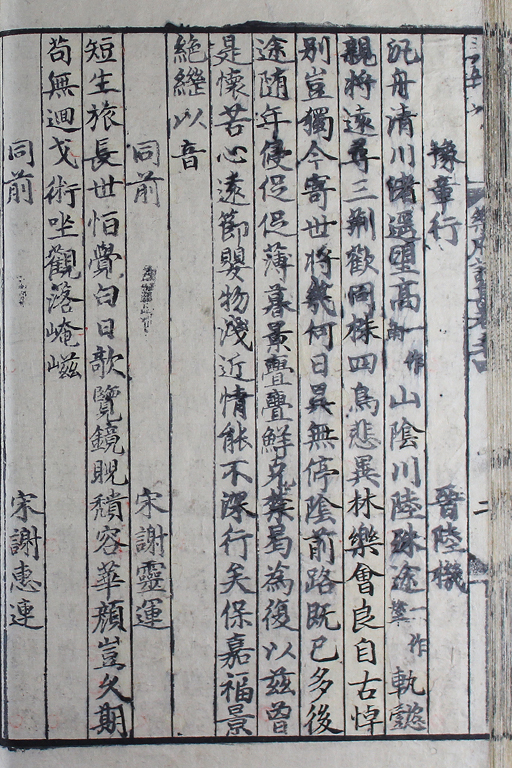 豫章行 晉陸機
汎舟清川渚遥望高一作山陰川陸殊途一作軌懿
親將遠尋三荆歡同株四鳥悲異林樂會良自古悼
别豈獨今寄世將幾何日昃無停陰前路既已多後
途随年侵促促薄暮景亹亹鮮克禁曷為復以兹曾
是懷苦心遠節嬰物淺近情能不深行矣保嘉福景
絶繼以音
同前 宋謝靈運
短生旅長世怕覺白日欹覽鏡睨穨容華顔豈久期
苟無迴戈術坐觀落崦嵫
同前 宋謝惠連